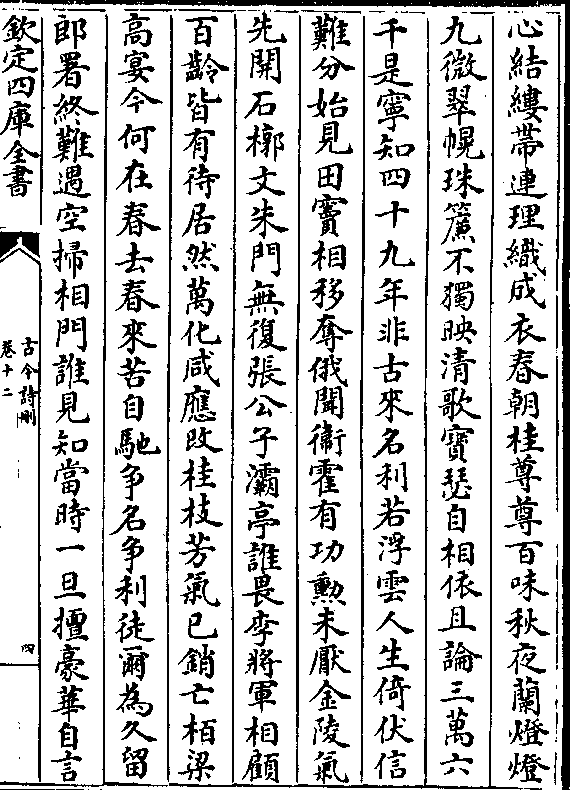 心結縷帶連理織成衣春朝桂尊尊百味秋夜蘭燈燈
九微翠幌珠簾不獨映清歌寳瑟自相依且論三萬六
千是寧知四十九年非古來名利若浮雲人生倚伏信
難分始見田竇相移奪俄聞衞霍有功勲未厭金陵氣
先開石槨文朱門無復張公子灞亭誰畏李將軍相顧
百齡皆有待居然萬化咸應改桂枝芳氣已銷亡栢梁
高宴今何在春去春來苦自馳争名争利徒爾為久留
郎署終難遇空掃相門誰見知當時一旦擅豪華自言
欽定四庫全書
古今詩刪
卷十二
四